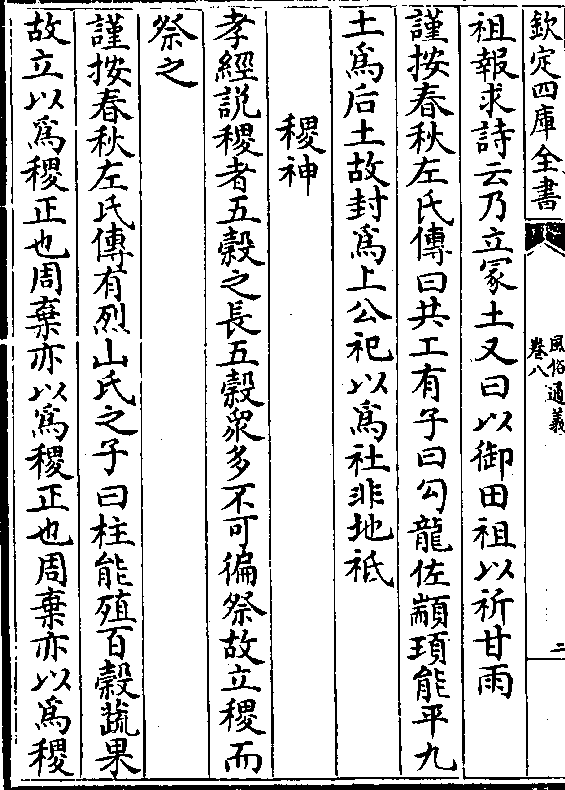 欽定四庫全書
風俗通義
卷八
二
祖報求詩云乃立冢土又曰以御田祖以祈甘雨
謹按春秋左氏傳曰共工有子曰勾龍佐顓頊能平九
土爲后土故封爲上公祀以爲社非地祇
稷神
孝經説稷者五糓之長五糓衆多不可徧祭故立稷而
祭之
謹按春秋左氏傳有烈山氏之子曰柱能殖百糓蔬果
故立以爲稷正也周棄亦以爲稷正也周棄亦以爲稷